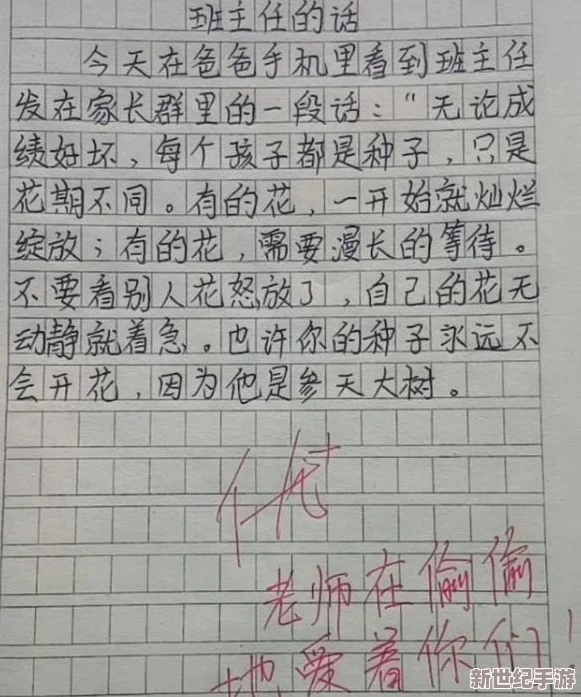 班主任的话
今天在爸爸手机里看到班主任
发在家长群里的一段话：“无论成
绩好坏，每个孩子都是种子，只是
花期不同。有的花，一开始就灿烂
绽放；有的花，需要漫长的等待。
不要看别人花怒放了，自己的花无
动静就着急。也许你的种子永远不
会开花，因为他是参天大树。
优+
老师在偷偷
地爱着你们！
新世纪手游